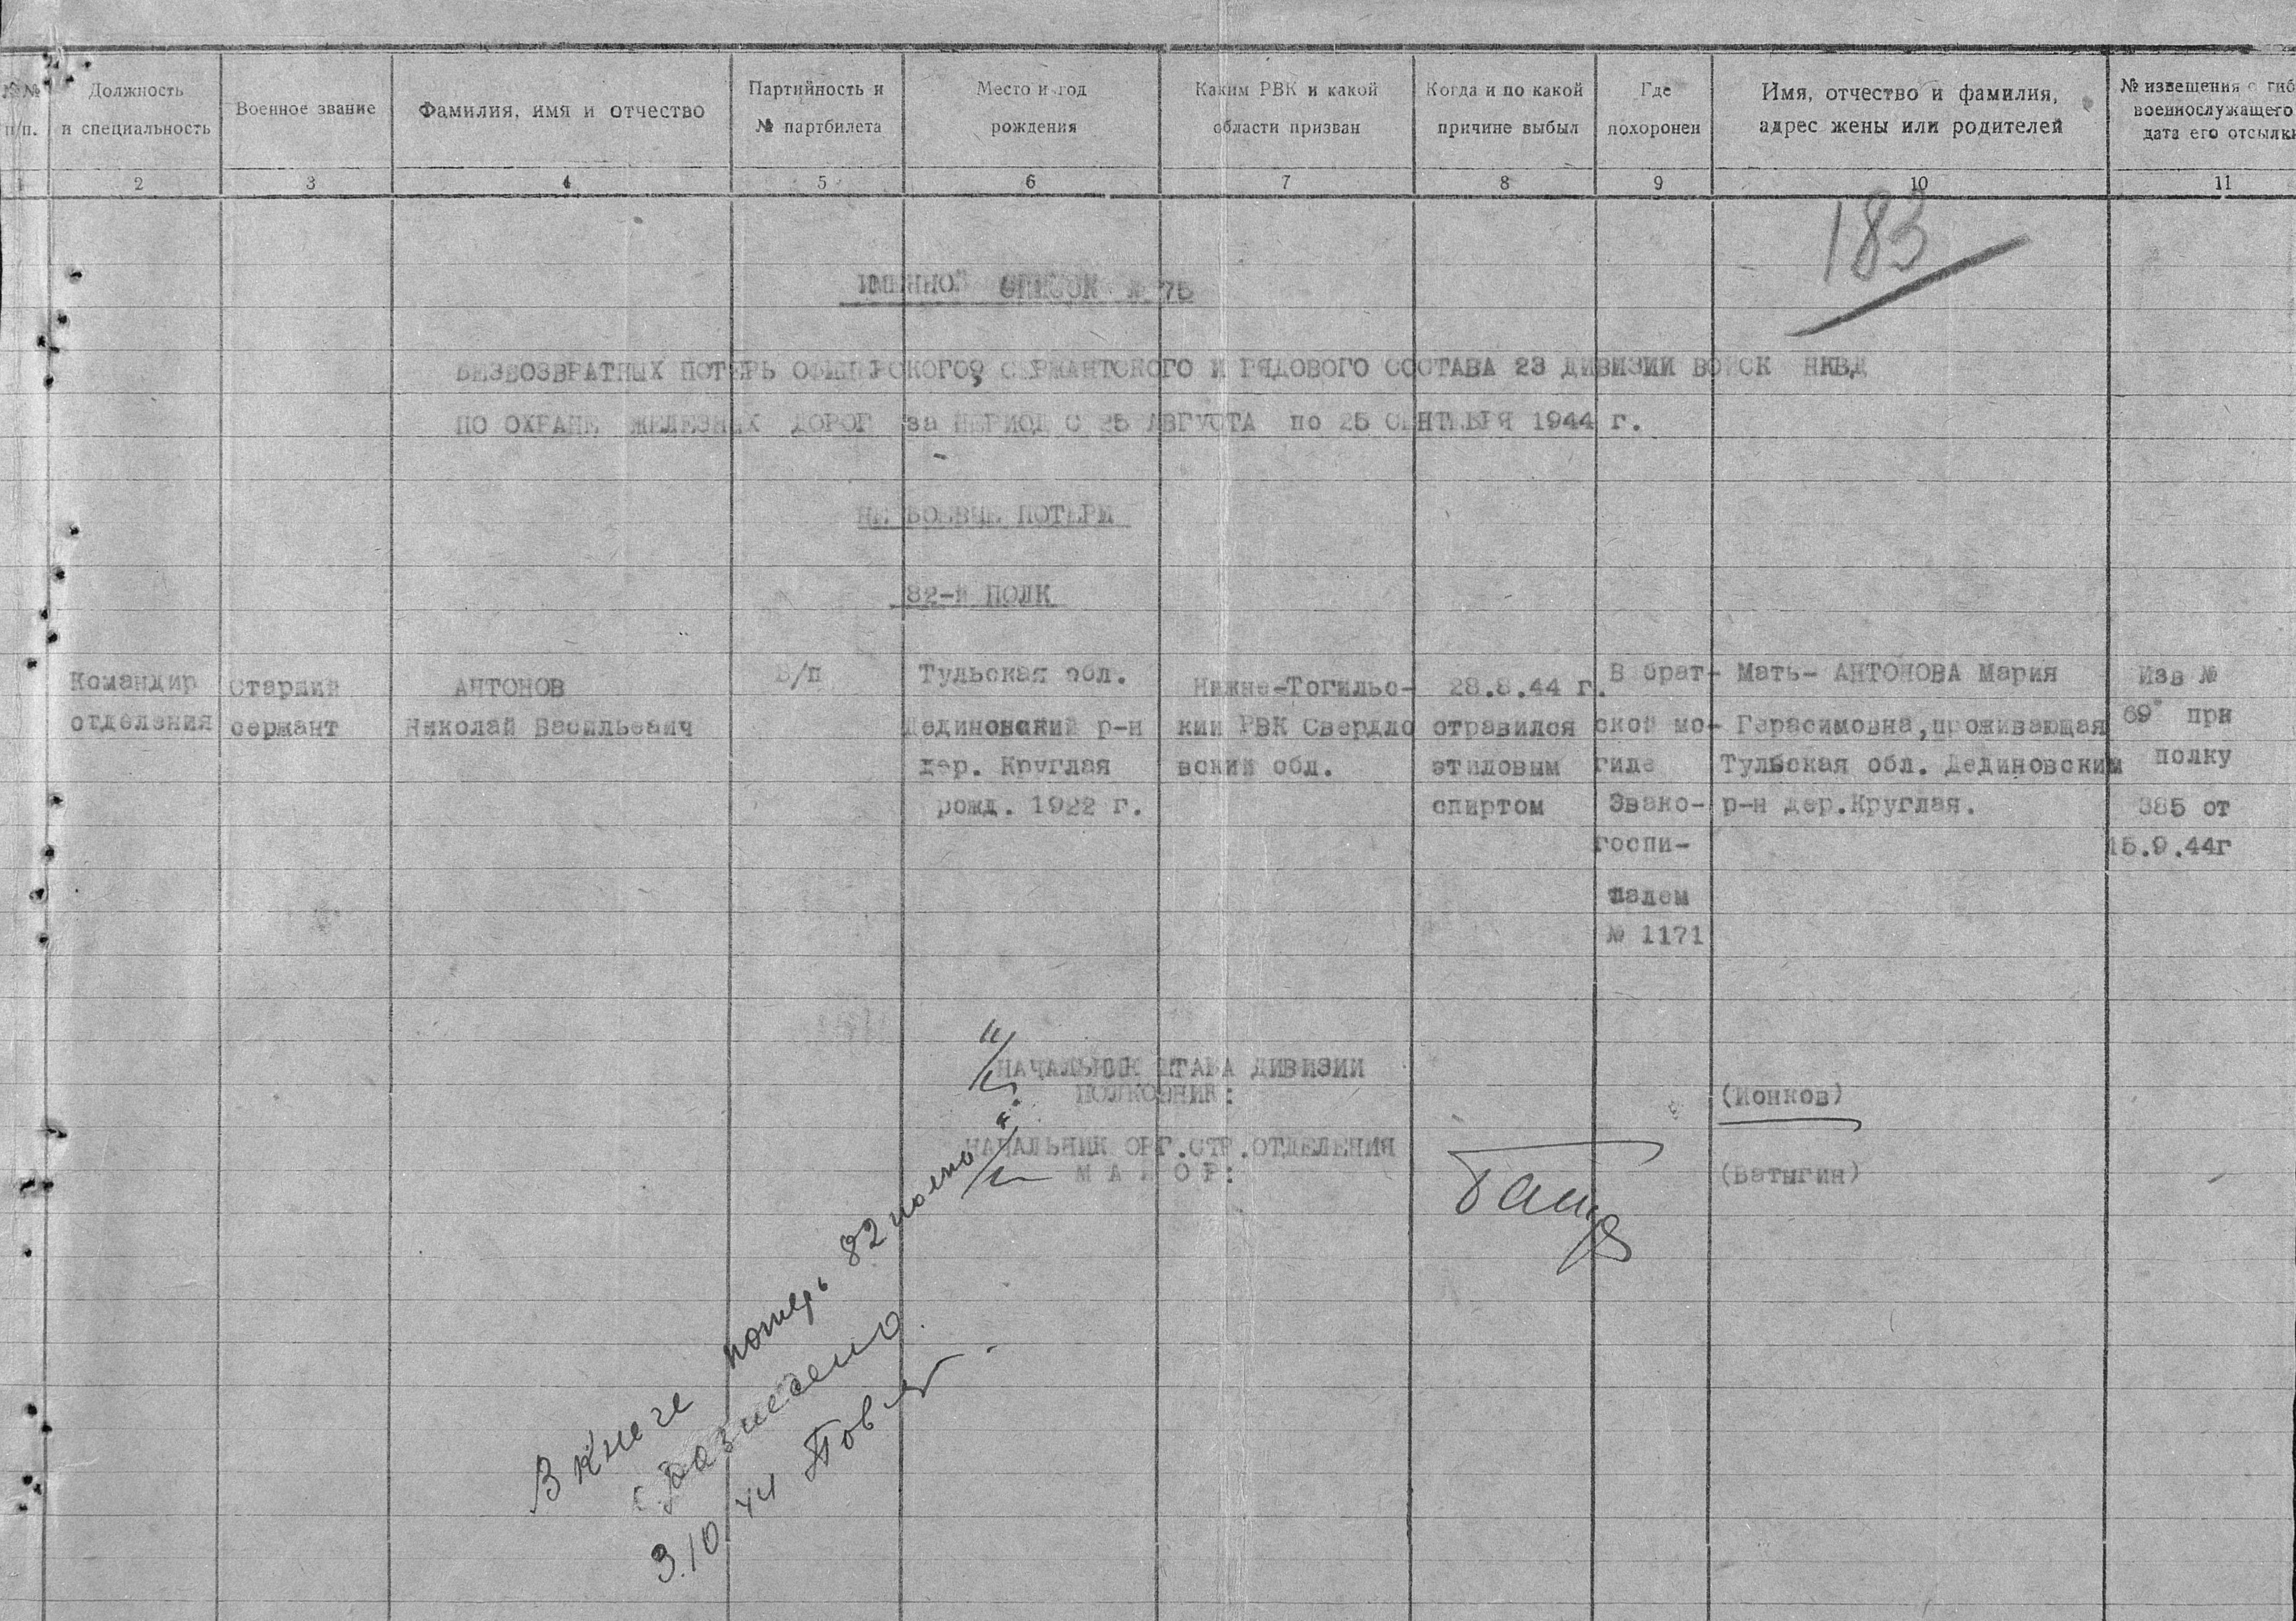 №№ п/п.
Должность и специальность
Военное звание
Фамилия, имя и отчество
Партийность и № партбилета
Место и год рождения
Каким РВК и какой области призван
Когда и по какой причине выбыл
Где похоронен
Имя, отчество и фамилия, адрес жены или родителей
№ извещения о гиб
военнослужащего
дата его отсылки
1 2 3 4 5 6 7 8 9 10 11
183
ИМЕННОЙ СПИСОК № 75
БЕЗВОЗВРАТНЫХ ПОТЕРЬ ОФИЦЕРСКОГО, СЕРЖАНТСКОГО И РЯДОВОГО СОСТАВА 23 ДИВИЗИИ ВОЙСК НКВД
ПО ОХРАНЕ ЖЕЛЕЗНЫХ ДОРОГ за ПЕРИОД С 25 АВГУСТА по 25 СЕНТЯБРЯ 1944 г.
НЕ БОЕВЫЕ ПОТЕРИ
82-й ПОЛК
Командир
отделения
Старший
сержант
АНТОНОВ
Николай Васильевич
Б/п
Тульская обл.
Дединовский р-н
дер. Круглая
рожд. 1922 г.
Нижне-Тогильс-
кий РВК Свердло
вский обл.
28.8.44 г.
отравился
этиловым
спиртом
В брат-
ской мо-
гиле
Эвако-
госпи-
талем
№ 1171
Мать- АНТОНОВА Мария
Герасимовна, проживающая
Тульская обл. Дединовский
р-н дер.Круглая.
Изв №
69 при
полку
385 от
15.9.44г
НАЧАЛЬНИК ШТАБА ДИВИЗИИ
ПОЛКОВНИК:
(Ионков)
НАЧАЛЬНИК ОРГ.СТР.ОТДЕЛЕНИЯ
М А Й О Р:
(Батыгин)
В книге потерь 82 полка
3.10.44